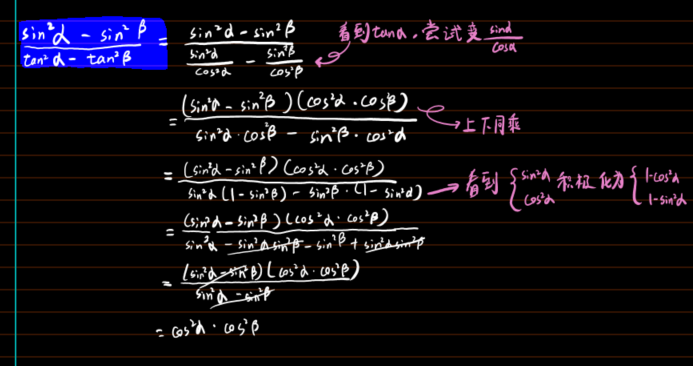 (sin²α - sin²β)/(tan²α - tan²β) = (sin²α - sin²β)/(sin²α/cos²α - sin²β/cos²β) 看到tanα,尝试变 sinα/cosα
= (sin²α - sin²β)(cos²α · cos²β)/(sin²α · cos²β - sin²β · cos²α) → 上下同乘
= (sin²α - sin²β)(cos²α · cos²β)/(sin²α(1 - sin²β) - sin²β · (1 - sin²α)) → 看到 { sin²α cos²α 积极化为 { 1-cos²α 1-sin²α
= (sin²α - sin²β)(cos²α · cos²β)/(sin²α - sin²α sin²β - sin²β + sin²α sin²β)
= (sin²α - sin²β)(cos²α · cos²β)/(sin²α - sin²β)
= cos²α · cos²β